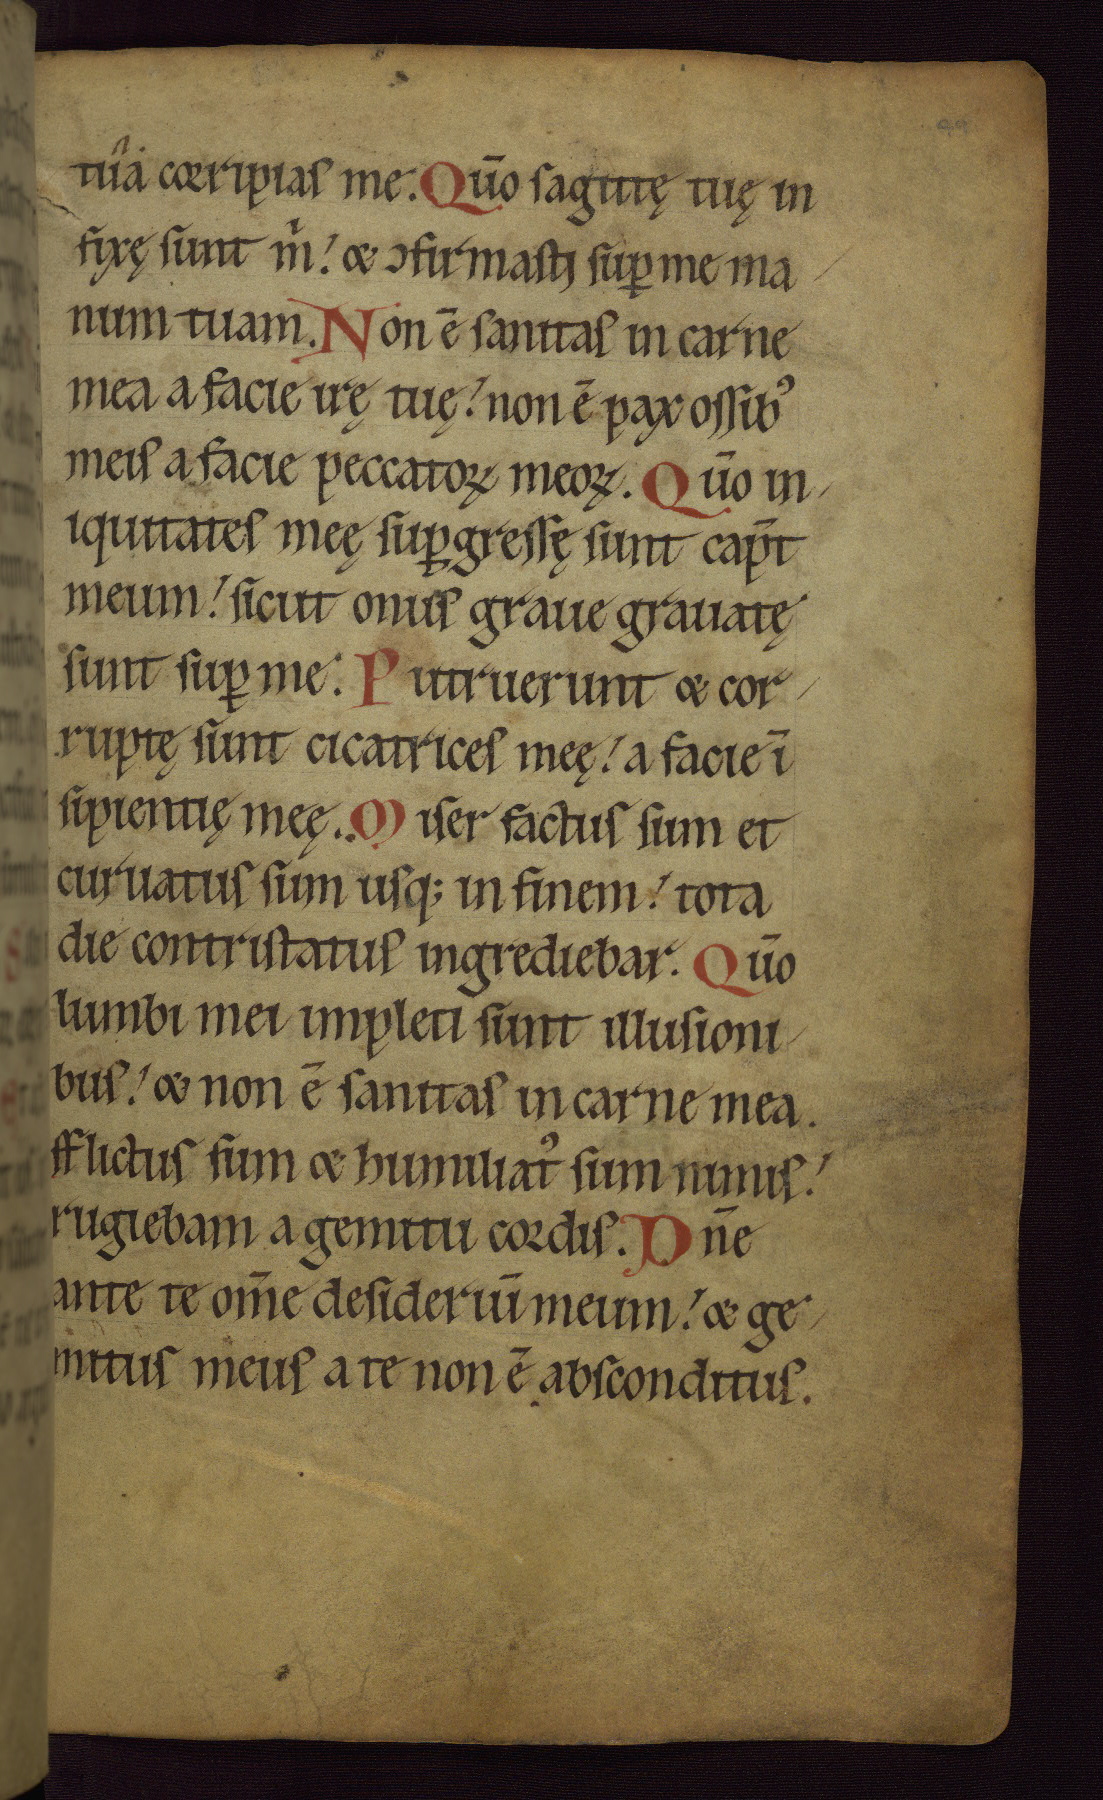 tuá corripias me. Qūo sagittę tuę in
fixę sunt m̊! & ↄfirmasti sup̱ me ma
num tuam. Non ē sanitas in carne
mea a facie irę tuę! non ē pax ossibꝰ
meis a facie peccatoꝝ meoꝝ. Qūo in
iquitates meę sup̱gressę sunt cap̄t
meum! sicut onus graue grauatę
sunt sup̱ me. Putruerunt & cor
ruptę sunt cicatrices meę! a facie ī
sipientię meę. Miser factus sum et
curuatus sum usq; in finem! tota
die contristatus ingrediebar. Qūo
lumbi mei impleti sunt illusioni
bus! & non ē sanitas in carne mea.
fflictus sum & humiliatꝰ sum nimis!
rugiebam a gemitu cordis. Dn̄e
ante te om̄e desideriū meum! & ge
mitus meus a te non ē absconditus.